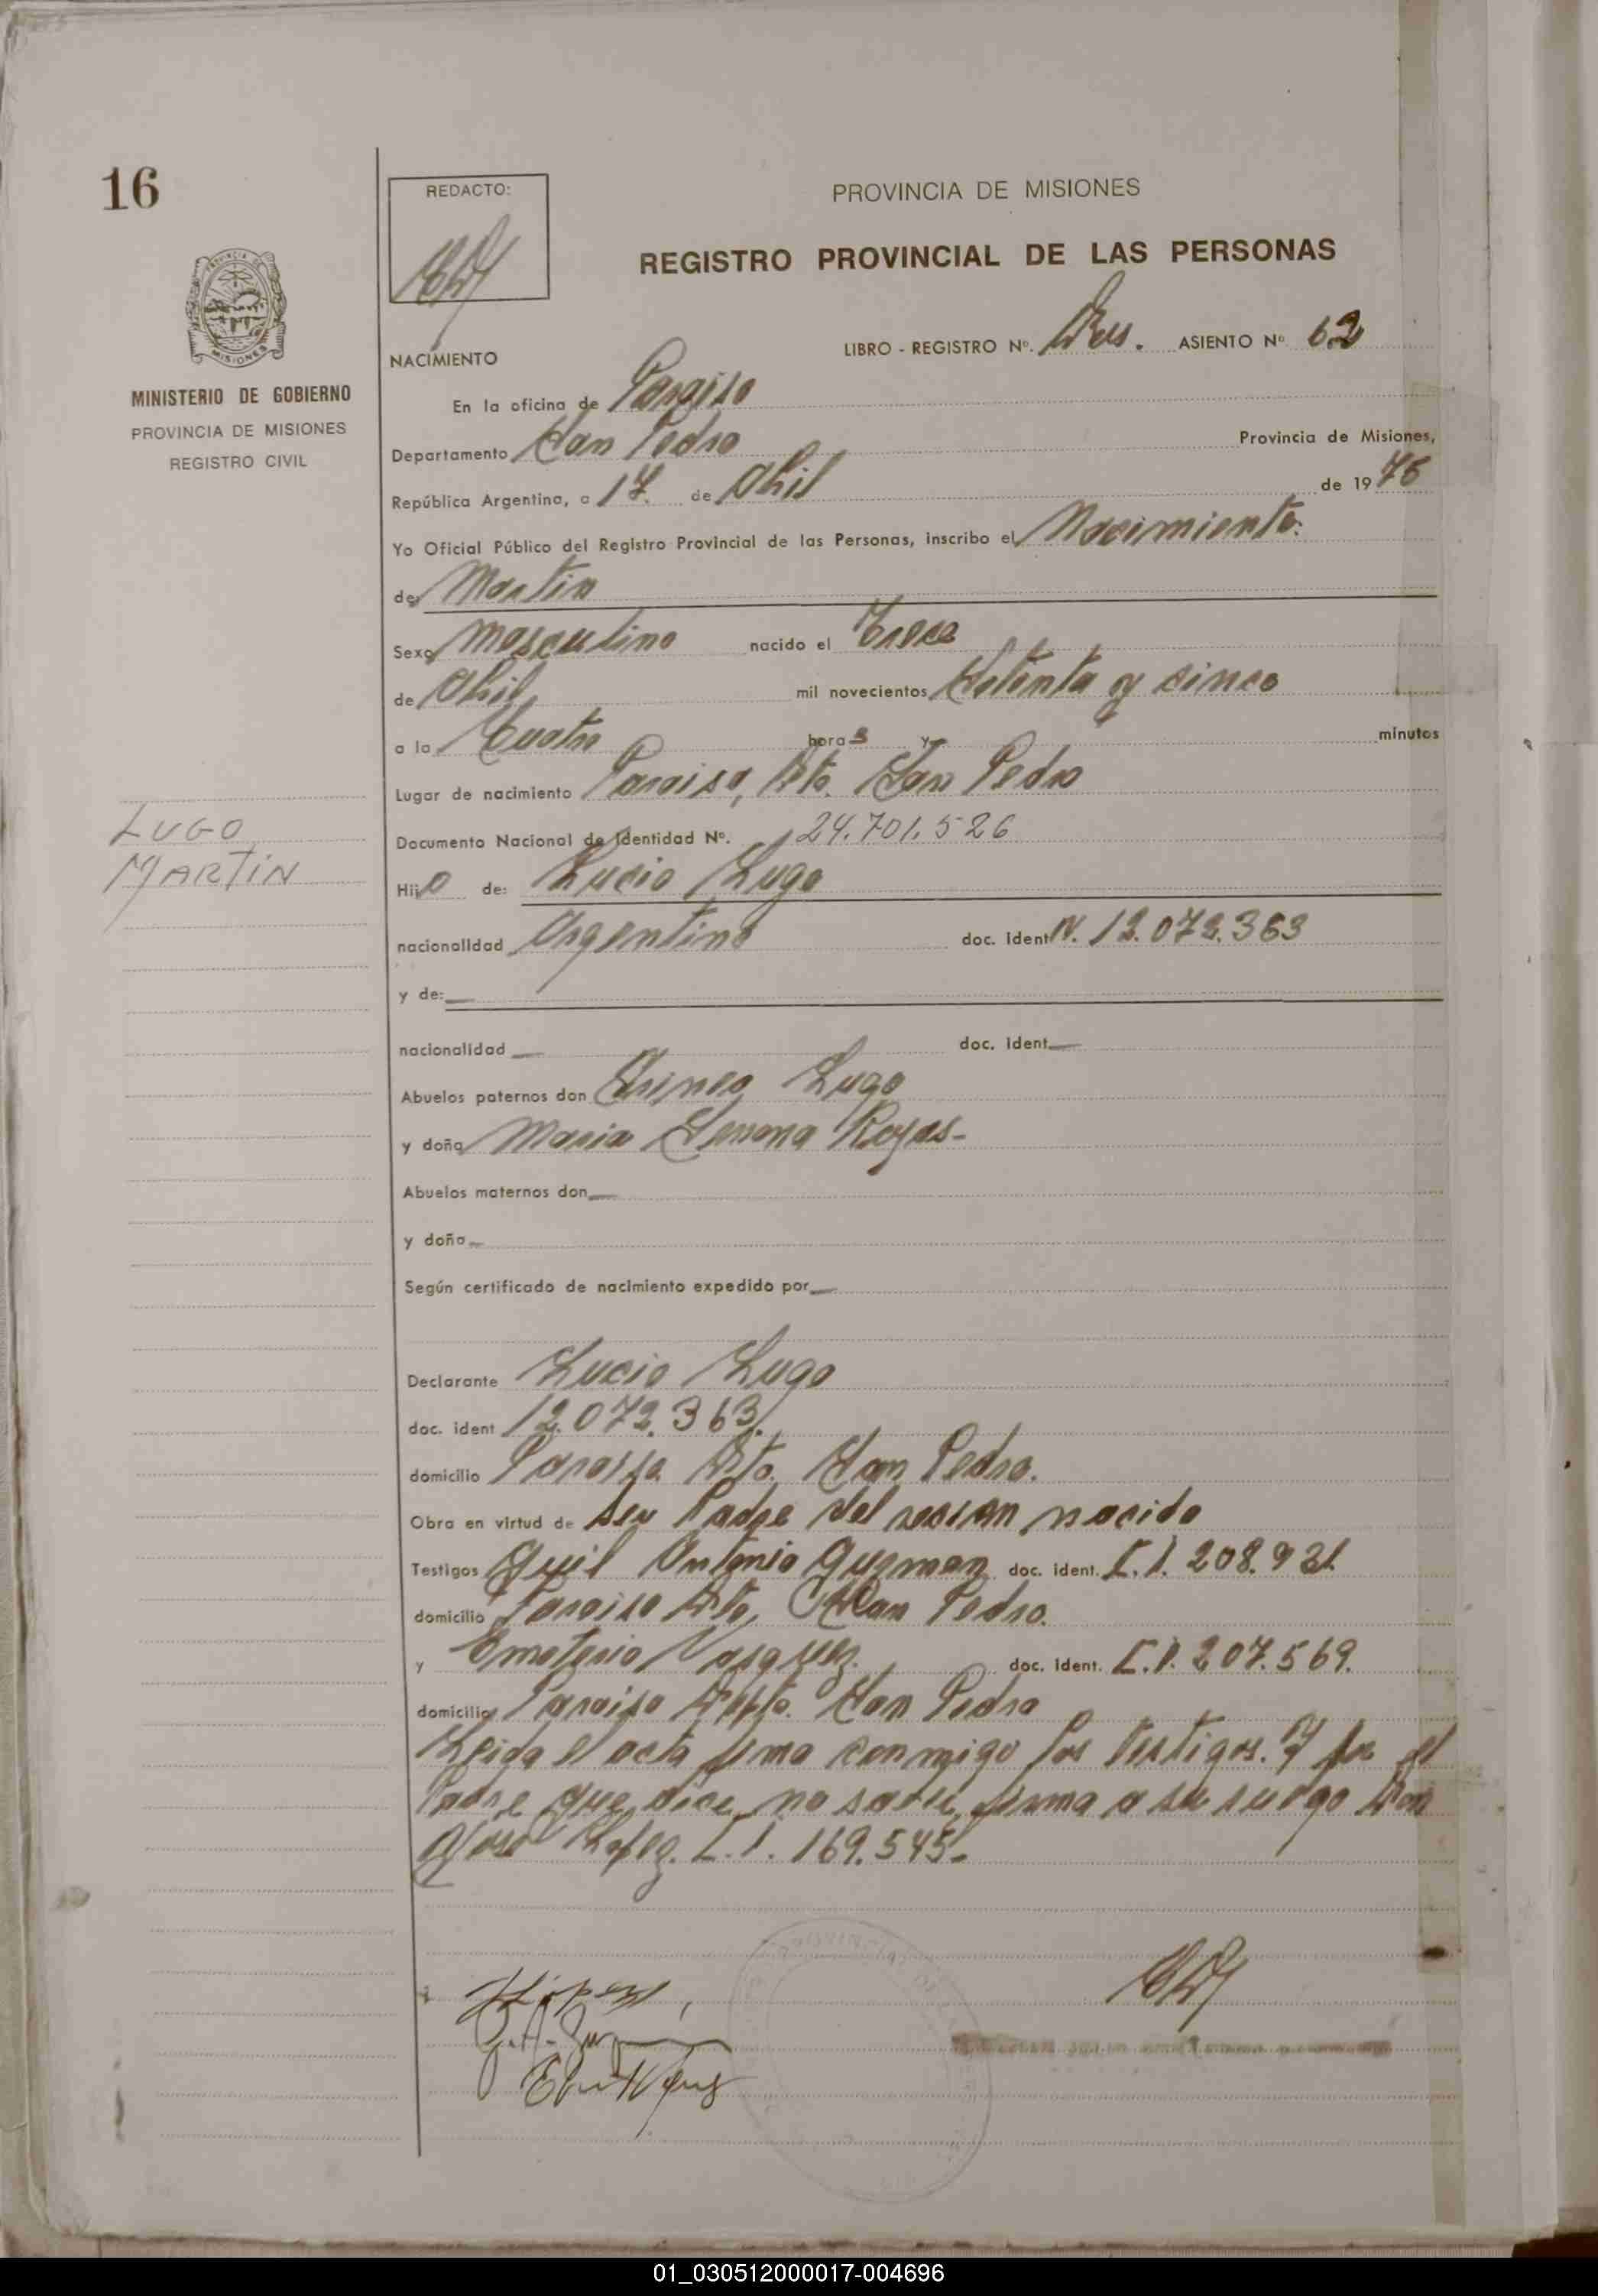 16
REDACTO:
PROVINCIA DE MISIONES
REGISTRO PROVINCIAL DE LAS PERSONAS
LIBRO - REGISTRO Nº. ASIENTO Nº 62
NACIMIENTO
MINISTERIO DE GOBIERNO
PROVINCIA DE MISIONES
REGISTRO CIVIL
MISIONES
En la oficina de Paraiso
Departamento San Pedro Provincia de Misiones,
República Argentina, a 17 de Abril de 1975
Yo Oficial Público del Registro Provincial de las Personas, inscribo el Nacimiento.
de Martin
Sexo masculino nacido el Trece
de Abril mil novecientos Setenta y cinco
a la Cuatro horas y minutos
Lugar de nacimiento Paraiso, Dto. San Pedro
Documento Nacional de Identidad Nº. 24.701.526
LUGO
MARTIN
Hijo de: Lucio Lugo
nacionalidad Argentino doc. ident N. 12.072.363
y de: —
nacionalidad — doc. ident. —
Abuelos paternos don Lugo
y doña Maria Rojas-
Abuelos maternos don —
y doña —
Según certificado de nacimiento expedido por —
Declarante Lucio Lugo
doc. ident 12.072.363.
domicilio Paraiso Dto. San Pedro.
Obra en virtud de ser Padre del recien nacido
Testigos Antonio Guzman doc. ident. C.I. 208.931
domicilio Paraiso Dto. San Pedro.
y Emeterio Vasquez. doc. ident. C.I. 207.569.
domicilio Paraiso Depto. San Pedro
Leida el acta firma conmigo los testigos. Y por el
Padre que dice no saber firma a su ruego Don
José Lopez. C.I. 169.545.
01_030512000017-004696